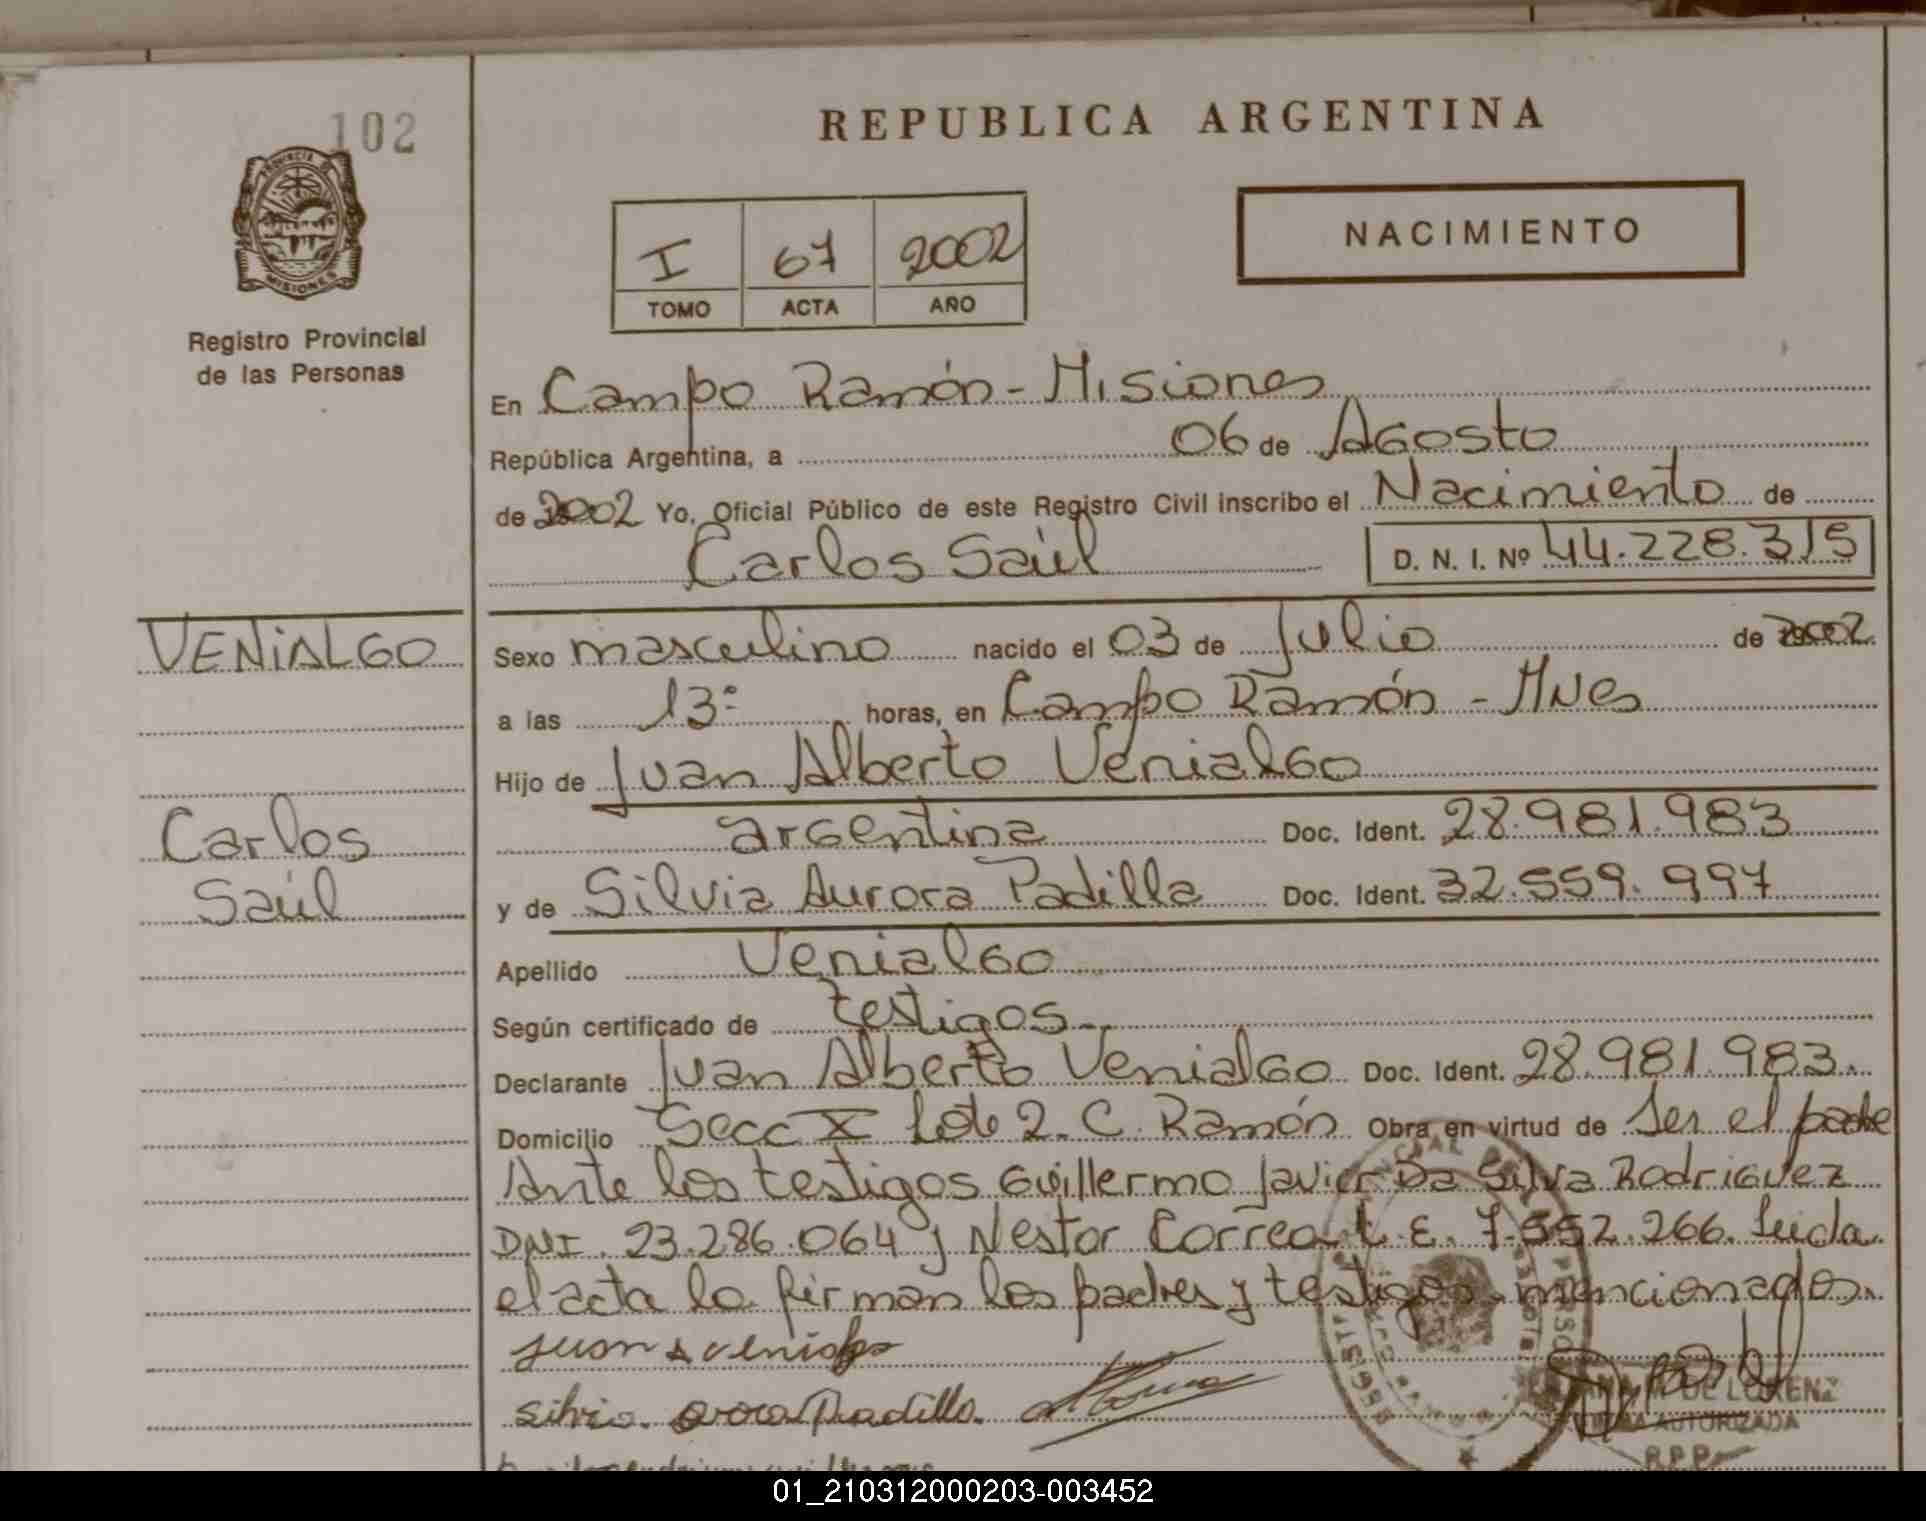 102
PROVINCIA DE
MISIONES
Registro Provincial
de las Personas
REPUBLICA ARGENTINA
I 67 2002
TOMO ACTA AÑO
NACIMIENTO
En Campo Ramón - Misiones
República Argentina, a 06 de Agosto
de 2002 Yo, Oficial Público de este Registro Civil inscribo el Nacimiento de
Carlos Saúl D. N. I. Nº 44.228.315
VENIALGO
Carlos
Saúl
Sexo masculino nacido el 03 de Julio de 2002
a las 13: horas, en Campo Ramón - Mnes
Hijo de Juan Alberto Venialgo
argentina Doc. Ident. 28.981.983
y de Silvia Aurora Padilla Doc. Ident. 32.559.997
Apellido Venialgo
Según certificado de testigos
Declarante Juan Alberto Venialgo Doc. Ident. 28.981.983.
Domicilio Secc X Lote 2. C. Ramón Obra en virtud de Ser el padre
Ante los testigos Guillermo Javier Da Silva Rodriguez
DNI. 23.286.064 y Nestor Correa L.E. 7.552.266. Leida
el acta la firman los padres y testigos mencionados.
Juan A venialgo
Silvia Padilla
DE LORENZ
AUTORIZADA
R.P.P.
01_210312000203-003452